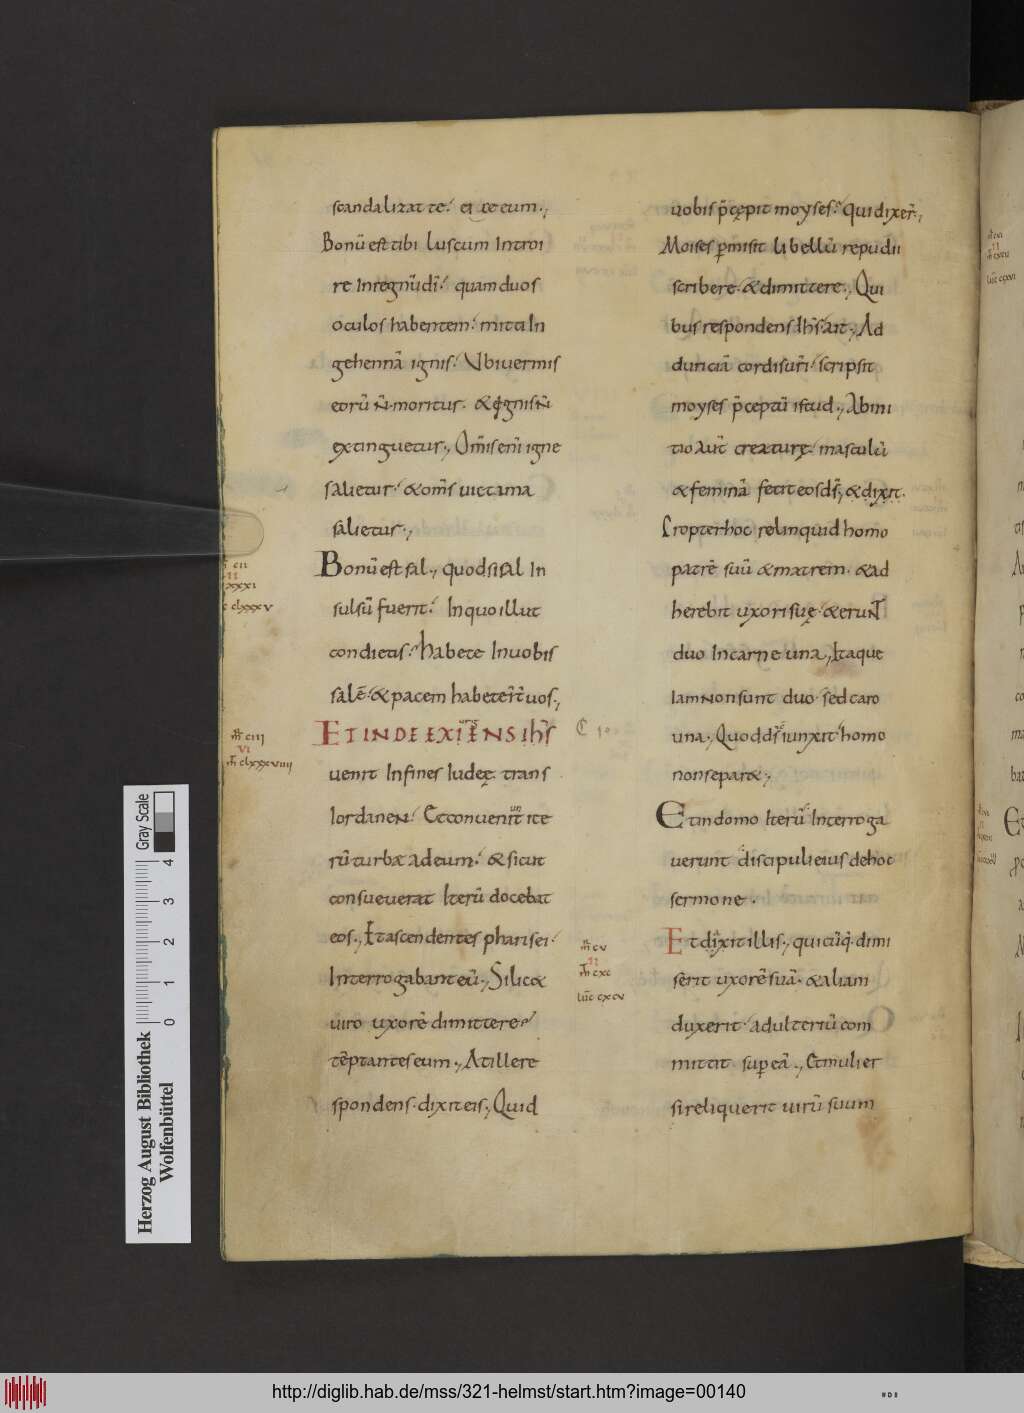 scandalizat te. ei ce eum.,
Bonū est tibi luscum Introi
re Inregnūdī. quam duos
oculos habentem. mitti In
gehennā ignis. Vbi uermis
eorū N̄ moritur. & ignis N̄
extinguetur., Om̄is enī igne
salietur. & om̄s uictima
salietur.,
Bonū est sal., quod si sal In
sulsū fuerit. Inquo illut
condietis. habete Inuobis
salē. & pacem habete īt̄ uos.,
ET INDE EXIENS ih̄s
uenit Infines Iudeę trans
Iordanen. Et conuenīt ite
rū turbae ad eum. & sicut
consueuerat Iterū docebat
eos., Et ascendentes pharisei.
Interrogabant eū., Si lic&
uiro uxorē dimittere
tēptantes eum., At ille re
spondens. dixit eis., Quid
C 10
uobis p̄cępit moyses. qui dixer̄.,
Moises pmisit libellū repudii
scribere. & dimittere., Qui
bus respondens ih̄s. ait., Ad
duriciā cordis ur̄i. scripsit
moyses p̄ceptū istud., Abini
tio aut̄ creaturę. masculū
& feminā fecit eos ds̄., & dixit.
Propter hoc relinquid homo
patrē suū & matrem. & ad
herebit uxori suę. & erunt
duo Incarne una., Itaque
Iam non sunt duo. sed caro
una., Quod ds̄ iunxit homo
non separ&.,
Et in domo Iterū Interroga
uerunt discipuli eius de hoc
sermone.
Et dixit illis., quicūq; dimi
serit uxorē suā. & aliam
duxerit. adulteriū com
mittit sup eā., Et mulier
si reliquerit uirū suum
cii
ii
xxxi
clxxxv
m̄r ciii
vi
m̄t clxxxviiii
m̄r cv
ii
m̄t cxc
luc̄ cxcv
Herzog August Bibliothek
Wolfenbüttel
Gray Scale
0 1 2 3 4
http://diglib.hab.de/mss/321-helmst/start.htm?image=00140